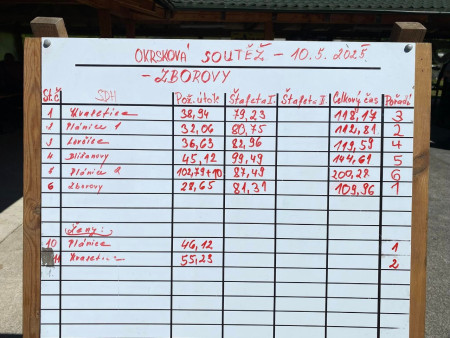 OKRSKOVÁ SOUTĚŽ – 10.5. 2025.
– ZBOROVY
St.č SDH Pož. útok Štafeta I. Štafeta II. Celkový čas Pořadí
1 Kvasetice 38,94 79,23 118,17 3
2 Plánice 1 32,06 80,75 112,81 2
3 36,63 82,96 119,59 4
4 45,12 99,49 144,61 5
5 Plánice 2 102,79+10 87,49 200,28 6
6 Zborovy 28,65 81,31 109,96 1
Ženy:
10 Plánice 46,12 1
11 55,23 2